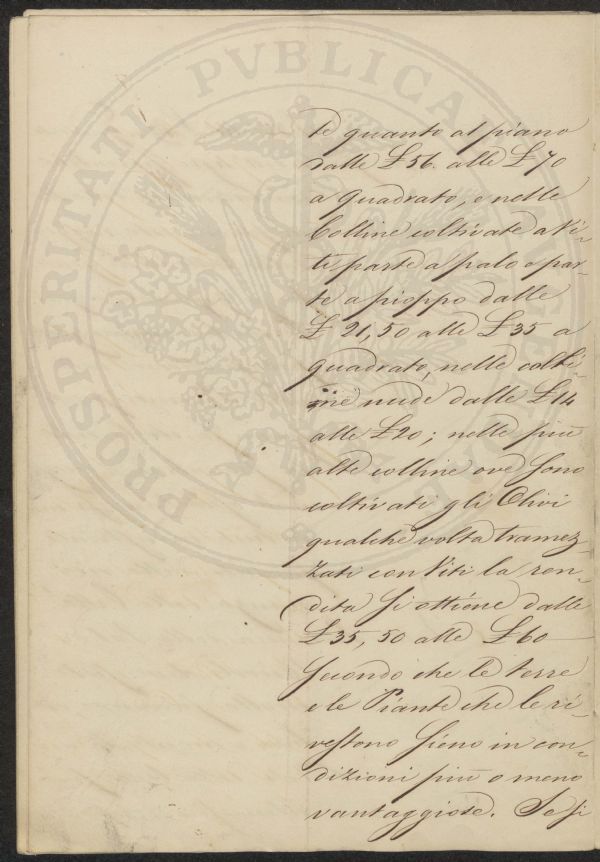 te quanto al piano
dalle £ 56. alle £ 70
a quadrato, e nelle
Colline coltivate a Vi-
ti parte a palo e par-
te a pioppo dalle
£ 21,50 alle £ 35 a
quadrato, nelle colti-
me nude dalle £ 14
alle £ 20; nelle più
alte colline ove sono
coltivati gli Olivi
qualche volta tramez-
zati con Viti la ren-
dita si ottiene dalle
£ 35,50 alle £ 60
secondo che le terre
e le Piante che le ri-
vestono sieno in con-
dizioni più o meno
vantaggiose. Se si
PROSPERITATI PVBLICAE